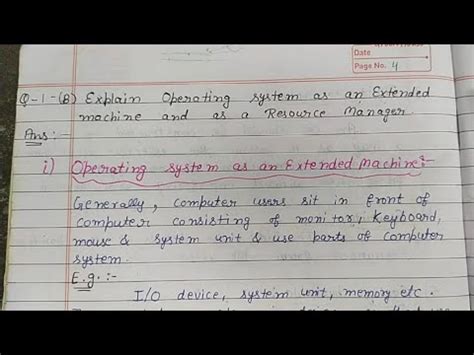 Date
Page No. 4
Q-1-(B) Explain Operating system as an Extended
machine and as a Resource Manager.
Ans :-
i) Operating system as an Extended machine:-
Generally, computer users sit in front of
computer consisting of monitor, Keyboard,
mouse & system unit & use parts of computer
system.
E.g. :-
I/O device, system unit, memory etc.